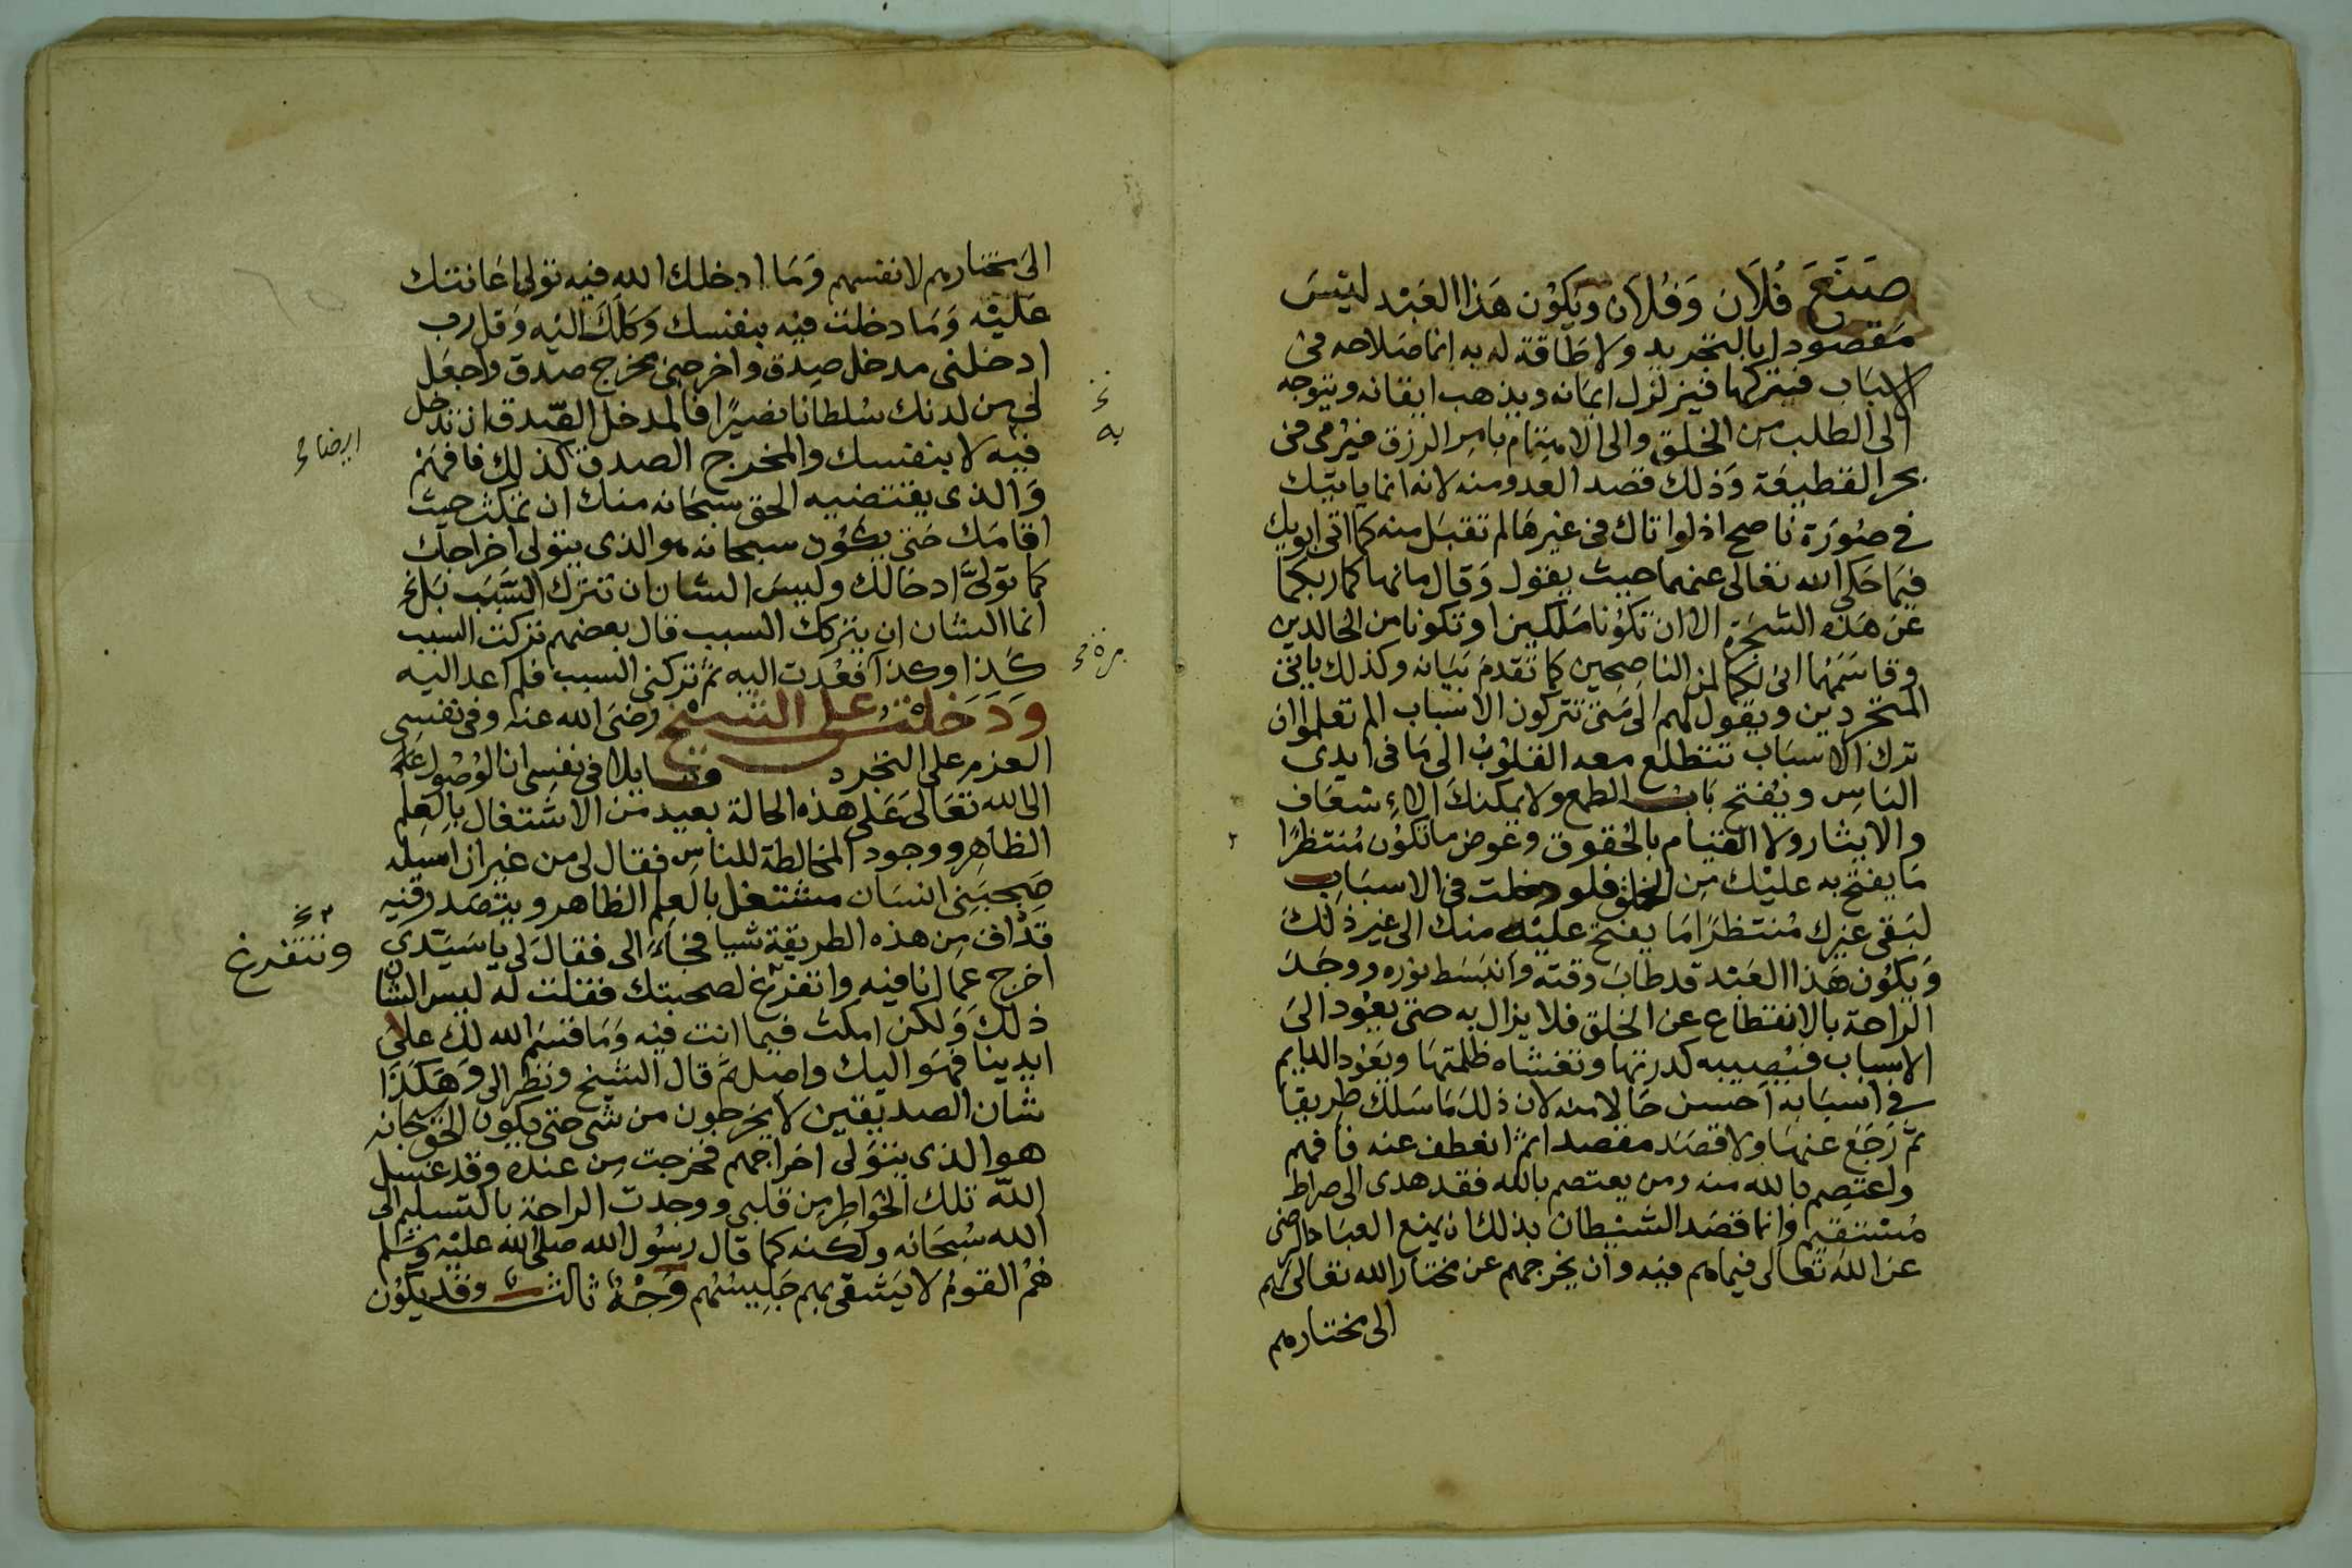 صنع فلان وفلان ويكون هذا العبد ليس
مقصودا بالتجريد ولا طاقة له به انما صلاحه في
الاسباب فيتركها فيتزلزل ايمانه ويذهب ايقانه ويتوجه
الى الطلب من الخلق والى الاهتمام بامر الرزق فيرمى في
بحر القطيعة وذلك قصد العدو منه لانه انما ياتيك
في صورة ناصح اذ لو اتاك في غيرها لم تقبل منه كما اتى ابويك
فيما حكى الله تعالى عنهما حيث يقول وقال ما نهاكما ربكما
عن هذه الشجرة الا ان تكونا ملكين او تكونا من الخالدين
وقاسمهما انى لكما لمن الناصحين كما تقدم بيانه وكذلك ياتى
المتجردين ويقول لهم الى متى تتركون الاسباب الم تعلموا ان
ترك الاسباب تتطلع معه القلوب الى ما فى ايدى
الناس ويفتح باب الطمع ولا يمكنك الاسعاف
والايثار ولا القيام بالحقوق وعوض ما تكون منتظرا
ما يفتح به عليك من الخلق فلو دخلت في الاسباب
لبقى غيرك منتظرا ما يفتح عليه منك الى غير ذلك
ويكون هذا العبد قد طاب وقته وانبسط نوره ووجد
الراحة بالانقطاع عن الخلق فلا يزال به حتى يعود الى
الاسباب فيصيبه كدرتها وتغشاه ظلمتها ويعود الدايم
في اسبابه احسن حالا منه لان ذلك ما سلك طريقا
ثم رجع عنها ولا قصد مقصدا ثم انعطف عنه فافهم
واعتصم بالله منه ومن يعتصم بالله فقد هدى الى صراط
مستقيم وانما قصد الشيطان بذلك ان يمنع العباد الرضى
عن الله تعالى فيما هم فيه وان يخرجهم عن مختار الله تعالى لهم
الى مختارهم
الى مختارهم لانفسهم وما ادخلك الله فيه تولى اعانتك
عليه وما دخلت فيه بنفسك وكلك اليه وقل رب
ادخلنى مدخل صدق واخرجنى مخرج صدق واجعل
لى من لدنك سلطانا نصيرا فالمدخل الصدق ان تدخل
فيه لا بنفسك والمخرج الصدق كذلك فافهم
ايضا خ
خ
به
والذى يقتضيه الحق سبحانه منك ان تمكث حيث
اقامك حتى يكون سبحانه هو الذى يتولى اخراجك
كما تولى ادخالك وليس الشان ان تترك السبب بل
انما الشان ان يتركك السبب قال بعضهم تركت السبب
كذا وكذا فعدت اليه ثم تركنى السبب فلم اعد اليه
مرة خ
ودخلت على الشيخ رضى الله عنه وفى نفسى
العزم على التجرد قايلا فى نفسى ان الوصول
الى الله تعالى على هذه الحالة بعيد من الاشتغال بالعلم
الظاهر ووجود المخالطة للناس فقال لى من غير ان اسيله
صحبنى انسان مشتغل بالعلم الظاهر ويتصدر فيه
قذاق من هذه الطريقة شيا فجاء الى فقال لى يا سيدى
اخرج عما انا فيه واتفرغ لصحبتك فقلت له ليس الشان
ونتفرغ
ذلك ولكن امكث فيما انت فيه وما قسم الله لك على
ايدينا فهو اليك واصل ثم قال الشيخ ونظر الى وهكذا
شان الصديقين لا يخرجون من شى حتى يكون الحق سبحانه
هو الذى يتولى اخراجهم فخرجت من عنده وقد غسل
الله تلك الخواطر من قلبى ووجدت الراحة بالتسليم الى
الله سبحانه ولكنه كما قال رسول الله صلى الله عليه وسلم
هم القوم لا يشقى بهم جليسهم وجه ثالث وقد يكون